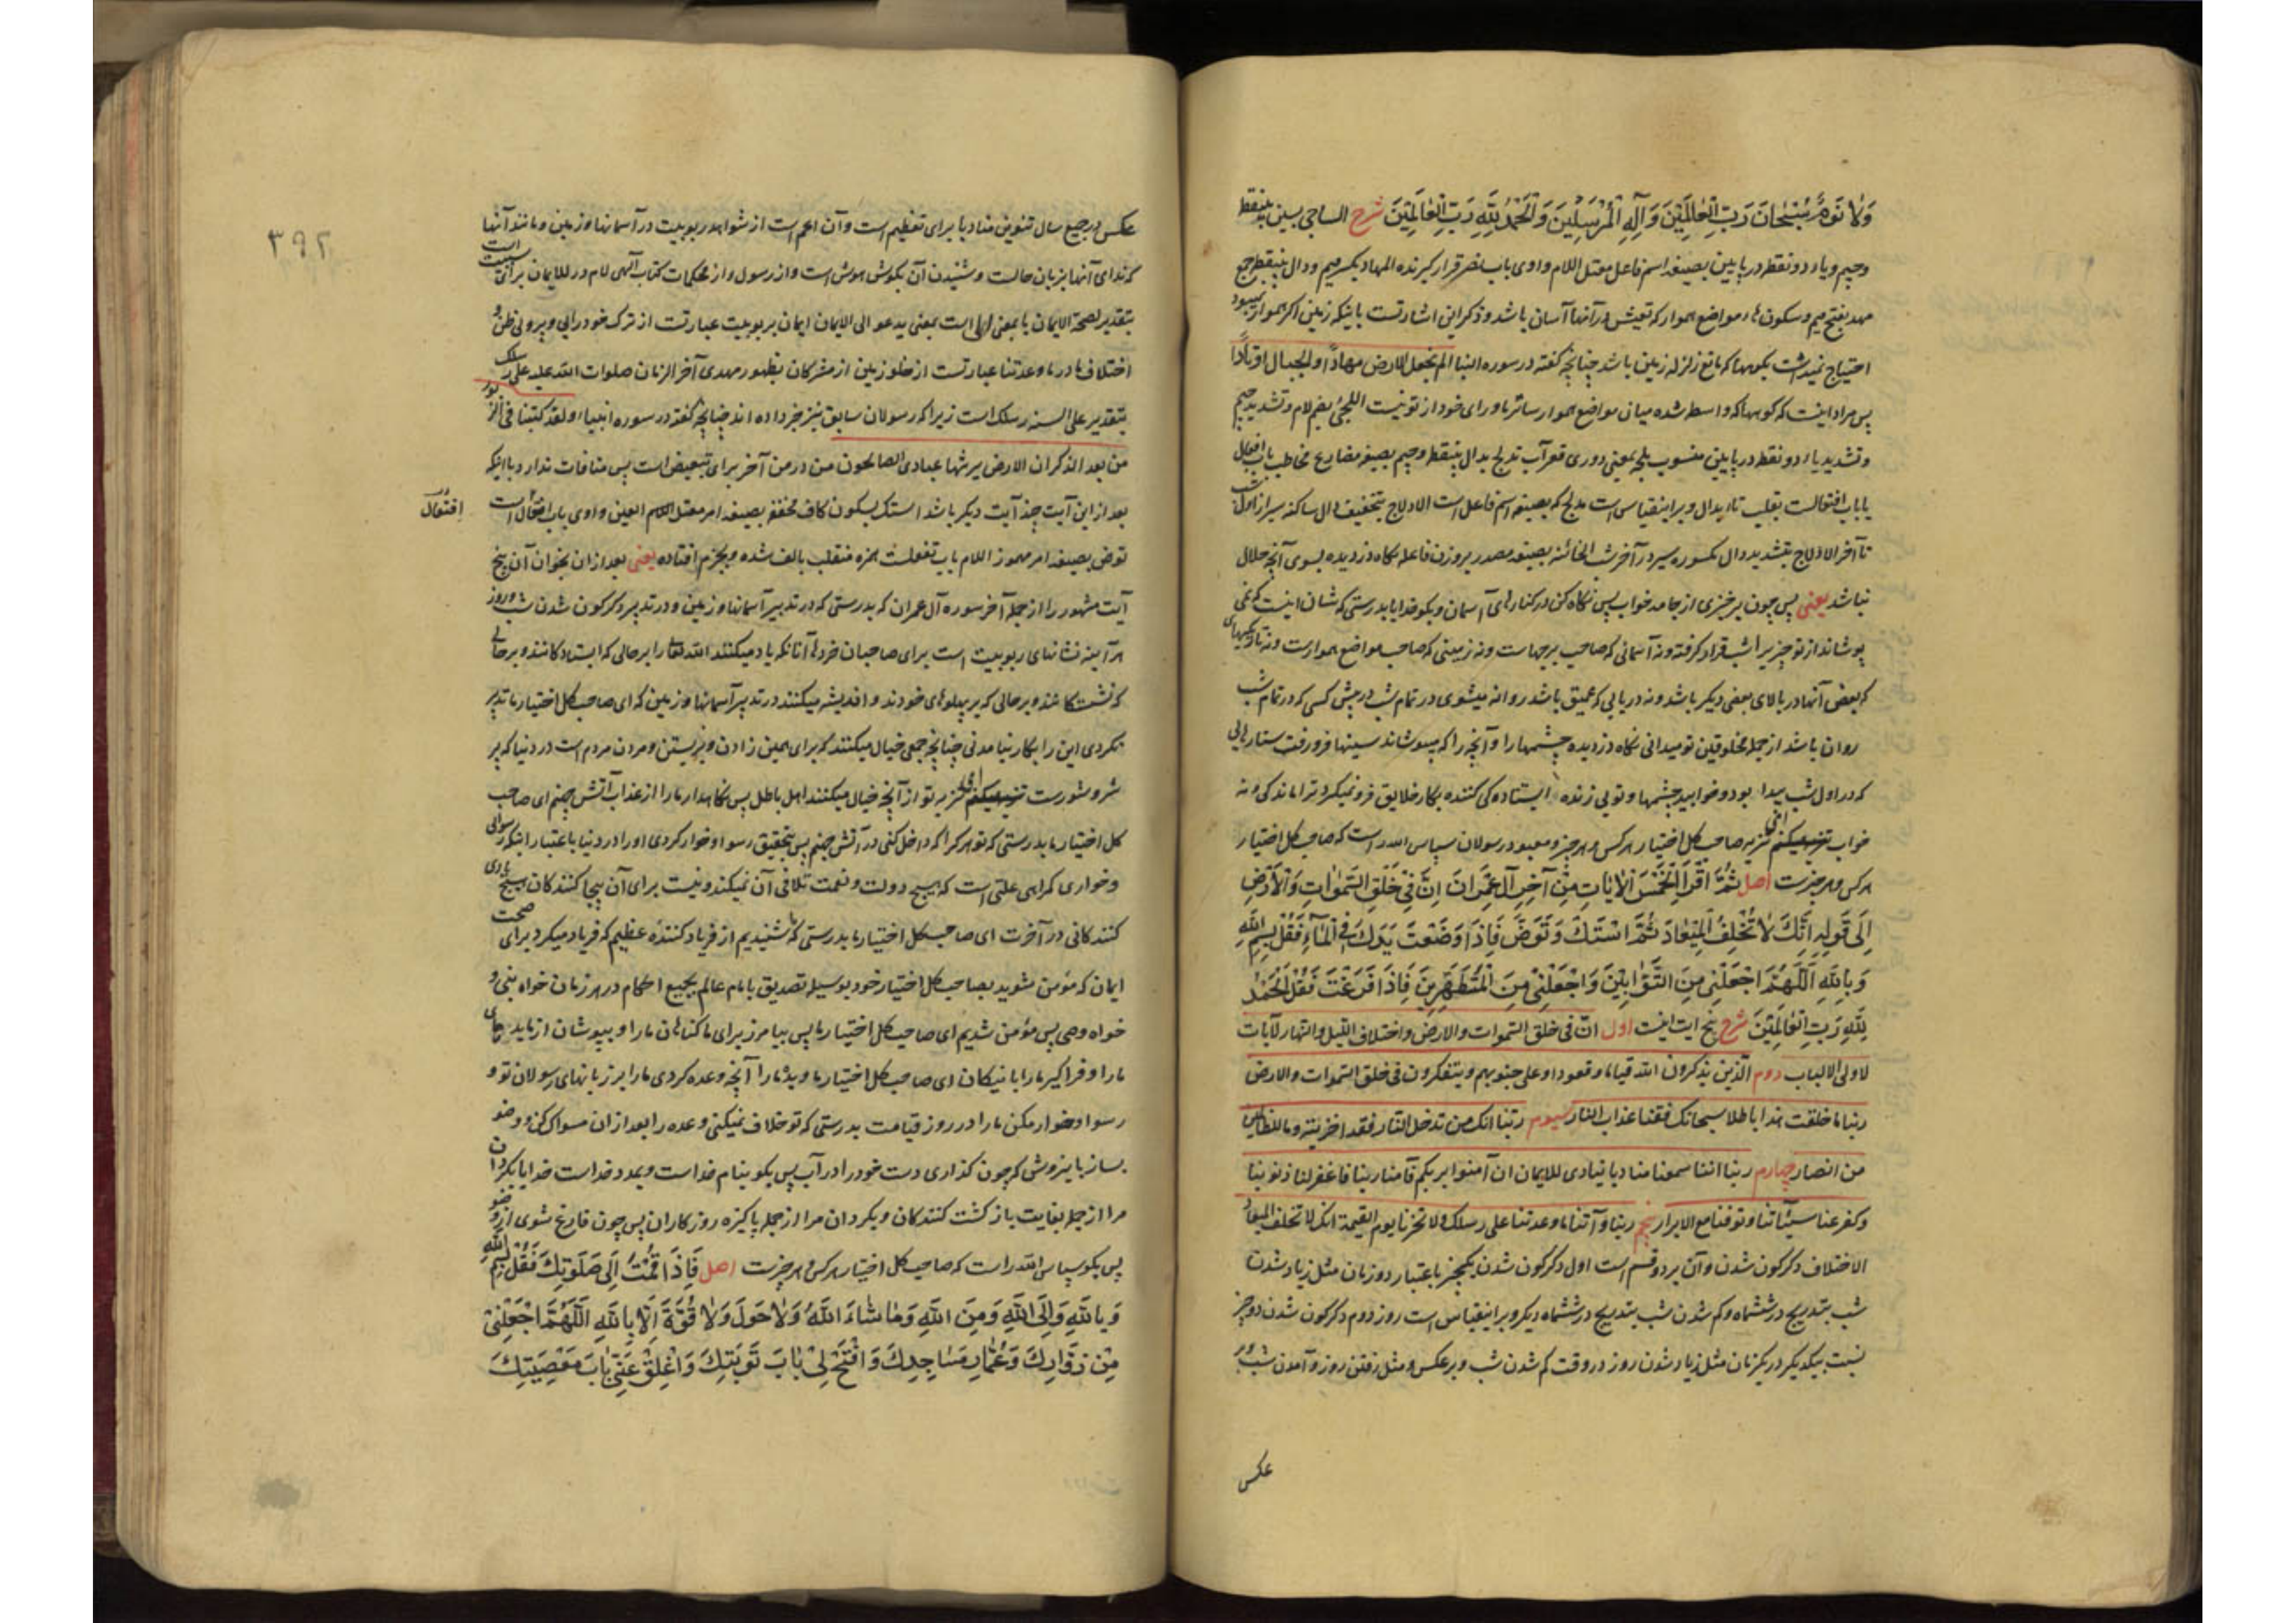 وَلٰا نَوْمٌ سُبْحٰانَ رَبِّ الْعٰالَمِيْنَ وَآلِهِ الْمُرْسَلِيْنَ وَالْحَمْدُ لِلّٰهِ رَبِّ الْعٰالَمِيْنَ شرح الساجی بسین بینقطه
وجیم ویاء دو نقطه در پایین بصیغه اسم فاعل معتل اللام واوی باب نصر قرار کیرنده المهاد بکسر میم ودال بینقطه جمع
مهد بفتح میم وسکون هاء مواضع هموار که تعیش در آنها آسان باشد وذکر این اشارتست باینکه زمین اکر هموار میبود
احتیاج نمیداشت بکوهها که مانع زلزله زمین باشد چنانچه کفته در سوره النبا الم نجعل الارض مهادًا والجبال اوتادًا
پس مراد اینست که کوهها که واسطه شده میان مواضع هموار ساتر ماورای خود از تو نیست اللجی بضم لام وتشدید جیم
وتشدید یاء دو نقطه در پایین منسوب بلجه بمعنی دوری قعر آب تدلج بدال بینقطه وجیم بصیغه مضارع مخاطب باب افعال
یا باب افتعالست بقلب تاء بدال وبراینقیاس است مدلج که بصیغه اسم فاعل است الادلاج بتخفیف دال ساکنه سیر از اول شب
تا آخر الادلاج بتشدید دال مکسوره سیر در آخر شب الخائنه بصیغه مصدر بر وزن فاعله نکاه دزدیده بسوی آنچه حلال
نباشد یعنی پس چون برخیزی از جامه خواب پس نکاه کن در کنارهای آسمان وبکو خدایا بدرستی که شان اینست که نمی
پوشاند از تو چیزیرا شب قرار کرفته ونه آسمانی که صاحب برجهاست ونه زمینی که صاحب مواضع هموارست ونه تاریکیهای
که بعض آنها در بالای بعضی دیکر باشد ونه دریایی که عمیق باشد روانه میشوی در تمام شب در پیش کسی که در تمام شب
روان باشد از جمله مخلوقین تو میدانی نکاه دزدیده چشمها را وآنچه را که میپوشاند سینها فرو رفت ستارهایی
که در اول شب پیدا بود وخوابید چشمها وتویی زنده ایستاده کی کننده بکار خلایق فرو نمیکیرد ترا ماندکی ونه
خواب تنزیه صاحب کل اختیار هر کس وهر چیز ومعبود رسولان سپاس الله راست که صاحب کل اختیار
هر کس وهر چیزست اصل ثُمَّ اقْرَأِ الْخَمْسَ الْاٰيٰاتِ مِنْ آخِرِ آلِ عِمْرٰانَ اِنَّ فِيْ خَلْقِ السَّمٰوٰاتِ وَالْاَرْضِ
اِلَى قَوْلِهِ اِنَّكَ لٰا تُخْلِفُ الْمِيْعٰادَ ثُمَّ اسْتَكْ وَتَوَضَّ فَاِذَا وَضَعْتَ يَدَكَ فِي الْمٰآءِ فَقُلْ بِسْمِ اللّٰهِ
وَبِاللّٰهِ اَللّٰهُمَّ اجْعَلْنِيْ مِنَ التَّوّٰابِيْنَ وَاجْعَلْنِيْ مِنَ الْمُتَطَهِّرِيْنَ فَاِذَا فَرَغْتَ فَقُلْ اَلْحَمْدُ
لِلّٰهِ رَبِّ الْعٰالَمِيْنَ شرح پنج آیت اینست اول انّ فی خلق السّموات والارض واختلاف اللیل والنهار لآیات
لاولی الالباب دوم الّذین یذکرون الله قیاما وقعودا وعلی جنوبهم ویتفکرون فی خلق السّموات والارض
ربنا ما خلقت هذا باطلا سبحانک فقنا عذاب النار سیوم ربّنا انک من تدخل النّار فقد اخزیته وما للظالمین
من انصار چهارم ربنا انّنا سمعنا منادیا ینادی للایمان ان آمنوا بربکم فآمنا ربنا فاغفر لنا ذنوبنا
وکفر عنا سیّئاتنا وتوفنا مع الابرار پنجم ربنا وآتنا ما وعدتنا علی رسلک ولا تخزنا یوم القیمة انک لا تخلف المیعاد
الاختلاف دکرکون شدن وآن بر دو قسم است اول دکرکون شدن یکچیز باعتبار دو زمان مثل زیاد شدن
شب بتدریج در ششماه وکم شدن شب بتدریج در ششماه دیکر وبراینقیاس است روز دوم دکرکون شدن دو چیز
نسبت بیکدیکر در یکزمان مثل زیاد شدن روز در وقت کم شدن شب وبرعکس ومثل رفتن روز وآمدن شب وبر
عکس
۳۹۲
عکس در جمیع سال تنوین منادیا برای تعظیم است وآن اعم است از شواهد ربوبیت در آسمانها وزمین ومانند آنها
که ندای آنها بزبان حالست وشنیدن آن بکوش هوش است واز رسول واز محکمات کتاب آلهی لام در للایمان برای سببیت است
بتقدیر لصحة الایمان یا بمعنی الی است بمعنی یدعو الی الایمان ایمان بربوبیت عبارتست از ترک خودرایی وپیروی ظن و
اختلاف ما در ما وعدتنا عبارتست از خلو زمین از مشرکان بظهور مهدی آخر الزمان صلوات الله علیه علی رسلک
بتقدیر علی السنه رسلک است زیرا که رسولان سابق نیز خبر داده اند چنانچه کفته در سوره انبیا ولقد کتبنا فی الزبور
من بعد الذکر ان الارض یرثها عبادی الصالحون من در من آخر برای تبعیض است پس منافات ندارد با اینکه
بعد از این آیت چند آیت دیکر باشد استک بسکون کاف مخففه بصیغه امر معتل العین واوی باب افتعال است
افتعال
توض بصیغه امر مهموز اللام باب تفعلست همزه منقلب بالف شده وبجزم افتاده یعنی بعد از ان بخوان آن پنج
آیت مشهور را از جمله آخر سوره آل عمران که بدرستی که در تدبیر آسمانها وزمین ودر تدبیر دکرکون شدن شب وروز
هر آینه نشانهای ربوبیت است برای صاحبان خردها آنانکه یاد میکنند الله تعالی را بر حالی که ایستادکانند وبر حالی
که نشستکانند وبر حالی که بر پهلوهای خودند واندیشه میکنند در تدبیر آسمانها وزمین که ای صاحب کل اختیار ما تدبیر
نکردی این را بیکار بنیامدنی چنانچه جمعی خیال میکنند که برای همین زادن وزیستن ومردن مردم است در دنیا که پر
شر وشورست تنزیه تو از آنچه خیال میکنند اهل باطل پس نکاهدار ما را از عذاب آتش جهنم ای صاحب
کل اختیار ما بدرستی که تو هر کرا که داخل کنی در آتش جهنم پس بتحقیق رسوا وخوار کردی او را در دنیا باعتبار اینکه رسوایی
وخواری کمراهی علتی است که هیچ دولت ونعمت تلافی آن نمیکند ونیست برای آن بیجا کنندکان هیچ یاری
کنندکانی در آخرت ای صاحب کل اختیار ما بدرستی که ما شنیدیم از فریاد کننده عظیم که فریاد میکرد برای صحت
ایمان که مؤمن شوید بصاحب کل اختیار خود بوسیله تصدیق بامام عالم بجمیع احکام در هر زمان خواه نبی و
خواه وصی پس مؤمن شدیم ای صاحب کل اختیار ما پس بیامرز برای ما کناهان ما را وبپوشان از ما بدیهای
ما را وفراکیر ما را با نیکان ای صاحب کل اختیار ما وبده ما را آنچه وعده کردی ما را بر زبانهای رسولان تو و
رسوا وخوار مکن ما را در روز قیامت بدرستی که تو خلاف نمیکنی وعده را بعد از ان مسواک کن ووضو
بساز باینروش که چون کذاری دست خود را در آب پس بکو بنام خداست وبمدد خداست خدایا بکردان
مرا از جمله بغایت باز کشت کنندکان وبکردان مرا از جمله پاکیزه روزکاران پس چون فارغ شوی از وضو
پس بکو سپاس الله راست که صاحب کل اختیار هر کس وهر چیزست اصل فَاِذَا قُمْتَ اِلَى صَلَوتِكَ فَقُلْ بِسْمِ اللّٰهِ
وَبِاللّٰهِ وَاِلَى اللّٰهِ وَمِنَ اللّٰهِ وَمٰا شٰاءَ اللّٰهُ وَلٰا حَوْلَ وَلٰا قُوَّةَ اِلّٰا بِاللّٰهِ اَللّٰهُمَّ اجْعَلْنِيْ
مِنْ زُوّٰارِكَ وَعُمّٰارِ مَسٰاجِدِكَ وَافْتَحْ لِيْ بٰابَ تَوْبَتِكَ وَاغْلِقْ عَنِّيْ بٰابَ مَعْصِيَتِكَ